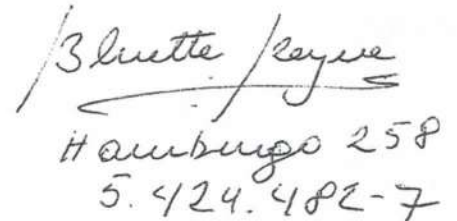 Bluette
Hamburgo 258
5.424.482-7